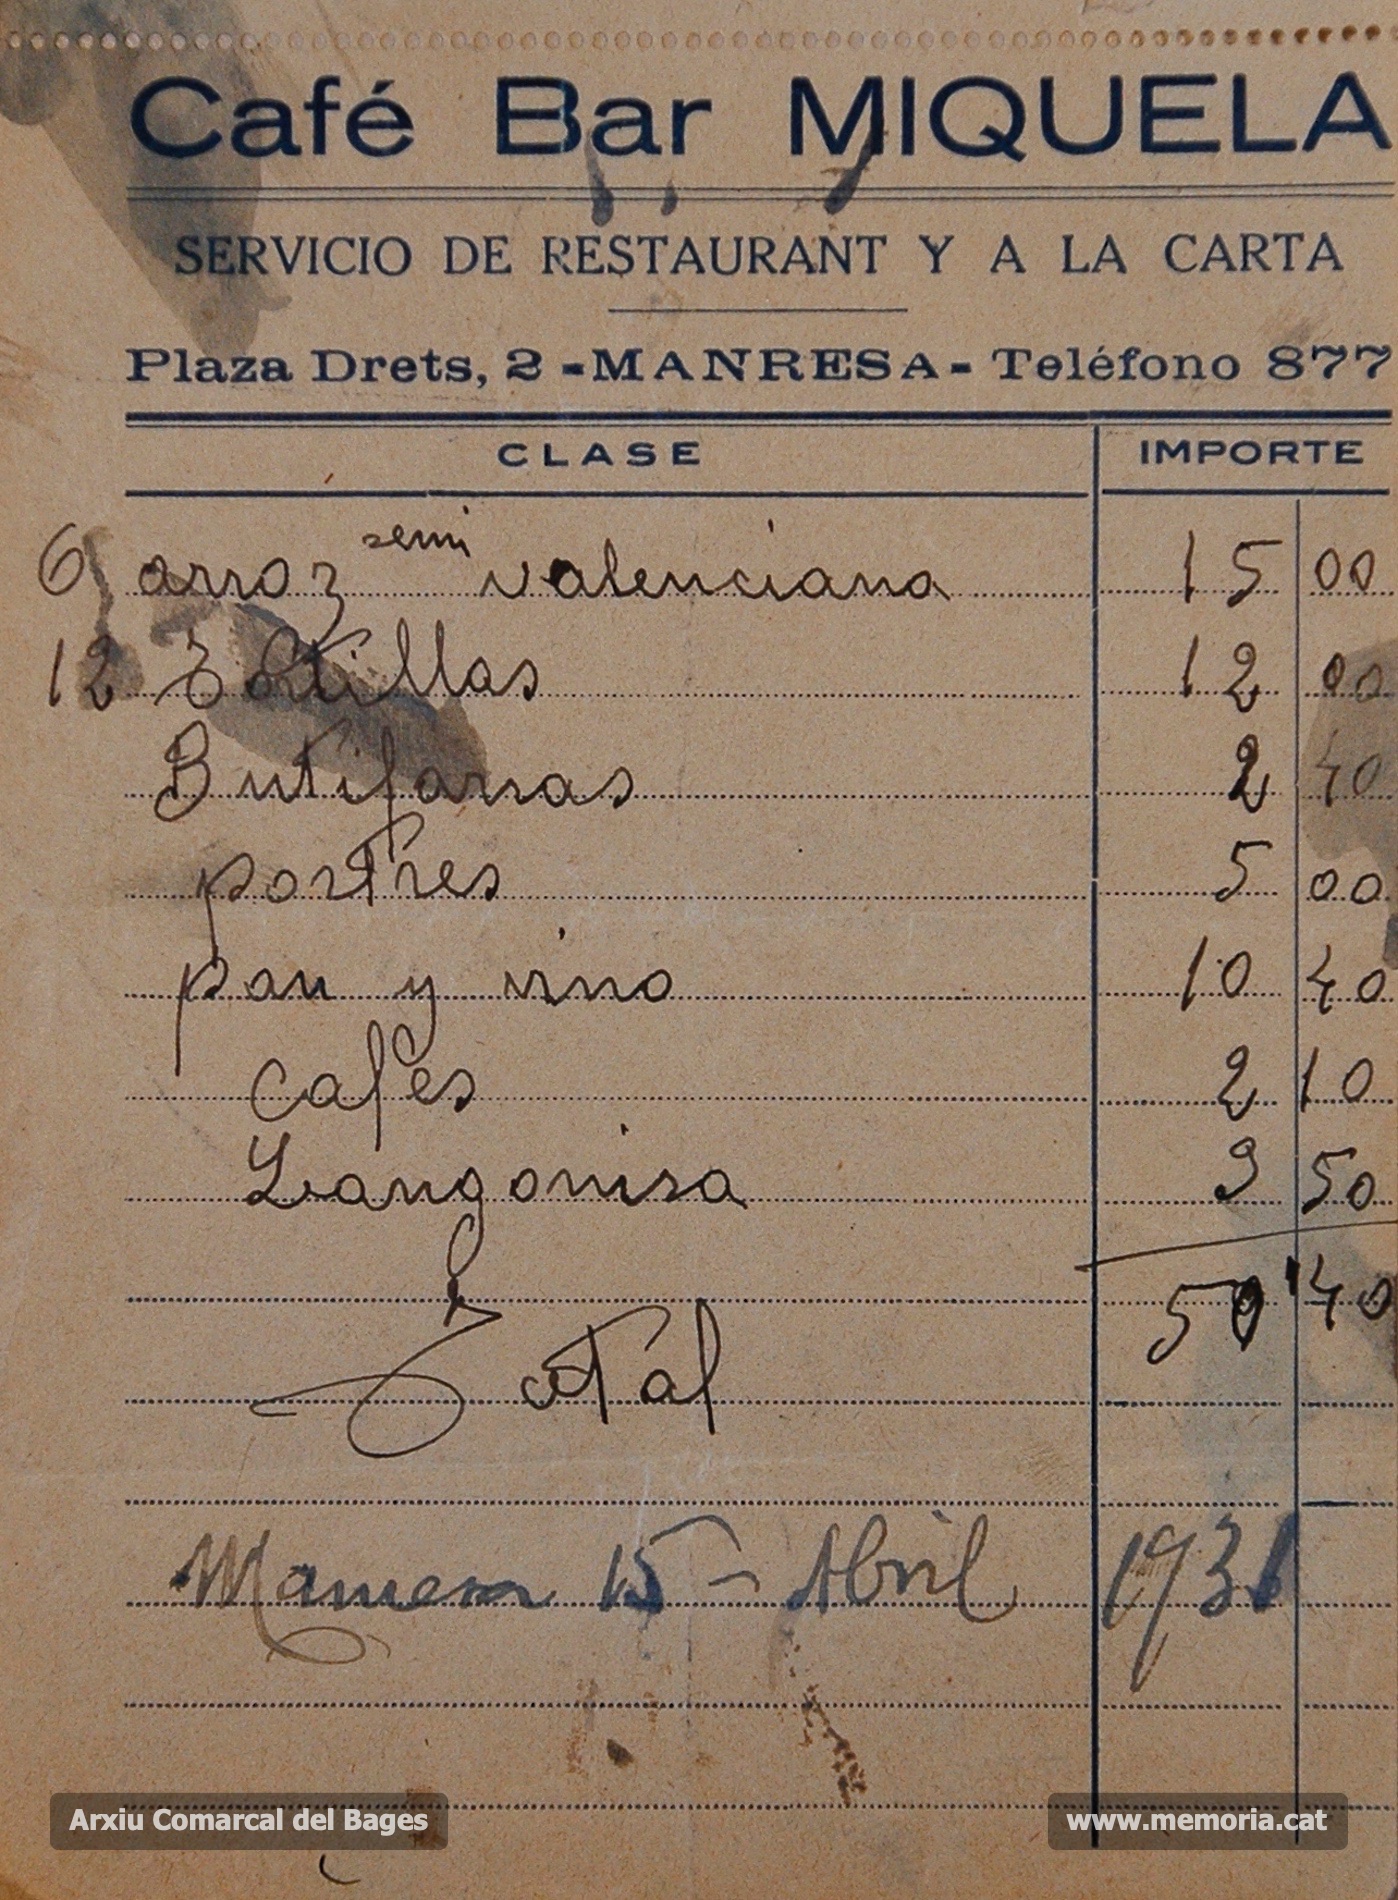 Café Bar MIQUELA
SERVICIO DE RESTAURANT Y A LA CARTA
Plaza Drets, 2 - MANRESA - Teléfono 877
CLASE IMPORTE
6 arroz semi valenciana 15 00
12 Tortillas 12 00
Butifarras 2 40
postres 5 00
pan y vino 10 40
cafes 2 10
Langonisa 3 50
50'40
Total
Manresa 15 - Abril 1931
Arxiu Comarcal del Bages www.memoria.cat